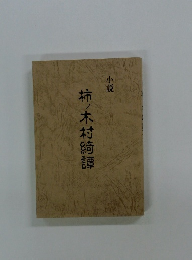 小説
柿ノ木村綺譚